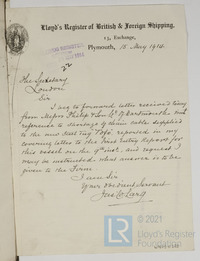 Lloyd's Register of British & Foreign Shipping,
13, Exchange,
Plymouth, 15 May 1914.
The Secretary
London
Sir
I beg to forward letter received today
from Messrs Philip & Son Ld of Dartmouth with
reference to shortage of chain cable supplied
to the new Steel Tug reported in my
covering letter to the First Entry Report for
this vessel on the 9th inst. and request I
may be instructed what answer is to be
given to the Firm
I am Sir
Your obedient Servant
© 2021
Lloyd's Register
Foundation